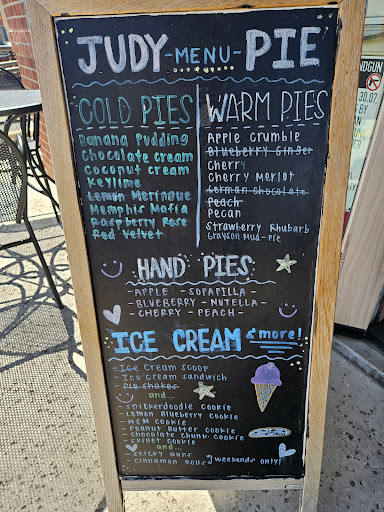 JUDY -MENU- PIE
COLD PIES
Banana Pudding
Chocolate cream
Coconut cream
Keylime
Lemon Meringue
Memphis Mafia
Raspberry Rose
Red Velvet
WARM PIES
Apple Crumble
Blueberry Ginger
Cherry
Cherry Merlot
German chocolate
Peach
Pecan
Strawberry Rhubarb
Grayson Mud-Pie
HAND PIES
APPLE - SOPAPILLA -
BLUEBERRY - NUTELLA -
- CHERRY - PEACH -
ICE CREAM & more!
- Ice Cream Scoop
- Ice cream sandwich
- Pie shakes
and...
- Snickerdoodle cookie
- Lemon Blueberry cookie
- M&M cookie
- Peanut Butter cookie
- Chocolate chunk cookie
- Skillet cookie
and...
- Sticky Buns
- Cinnamon Rolls
weekends only!